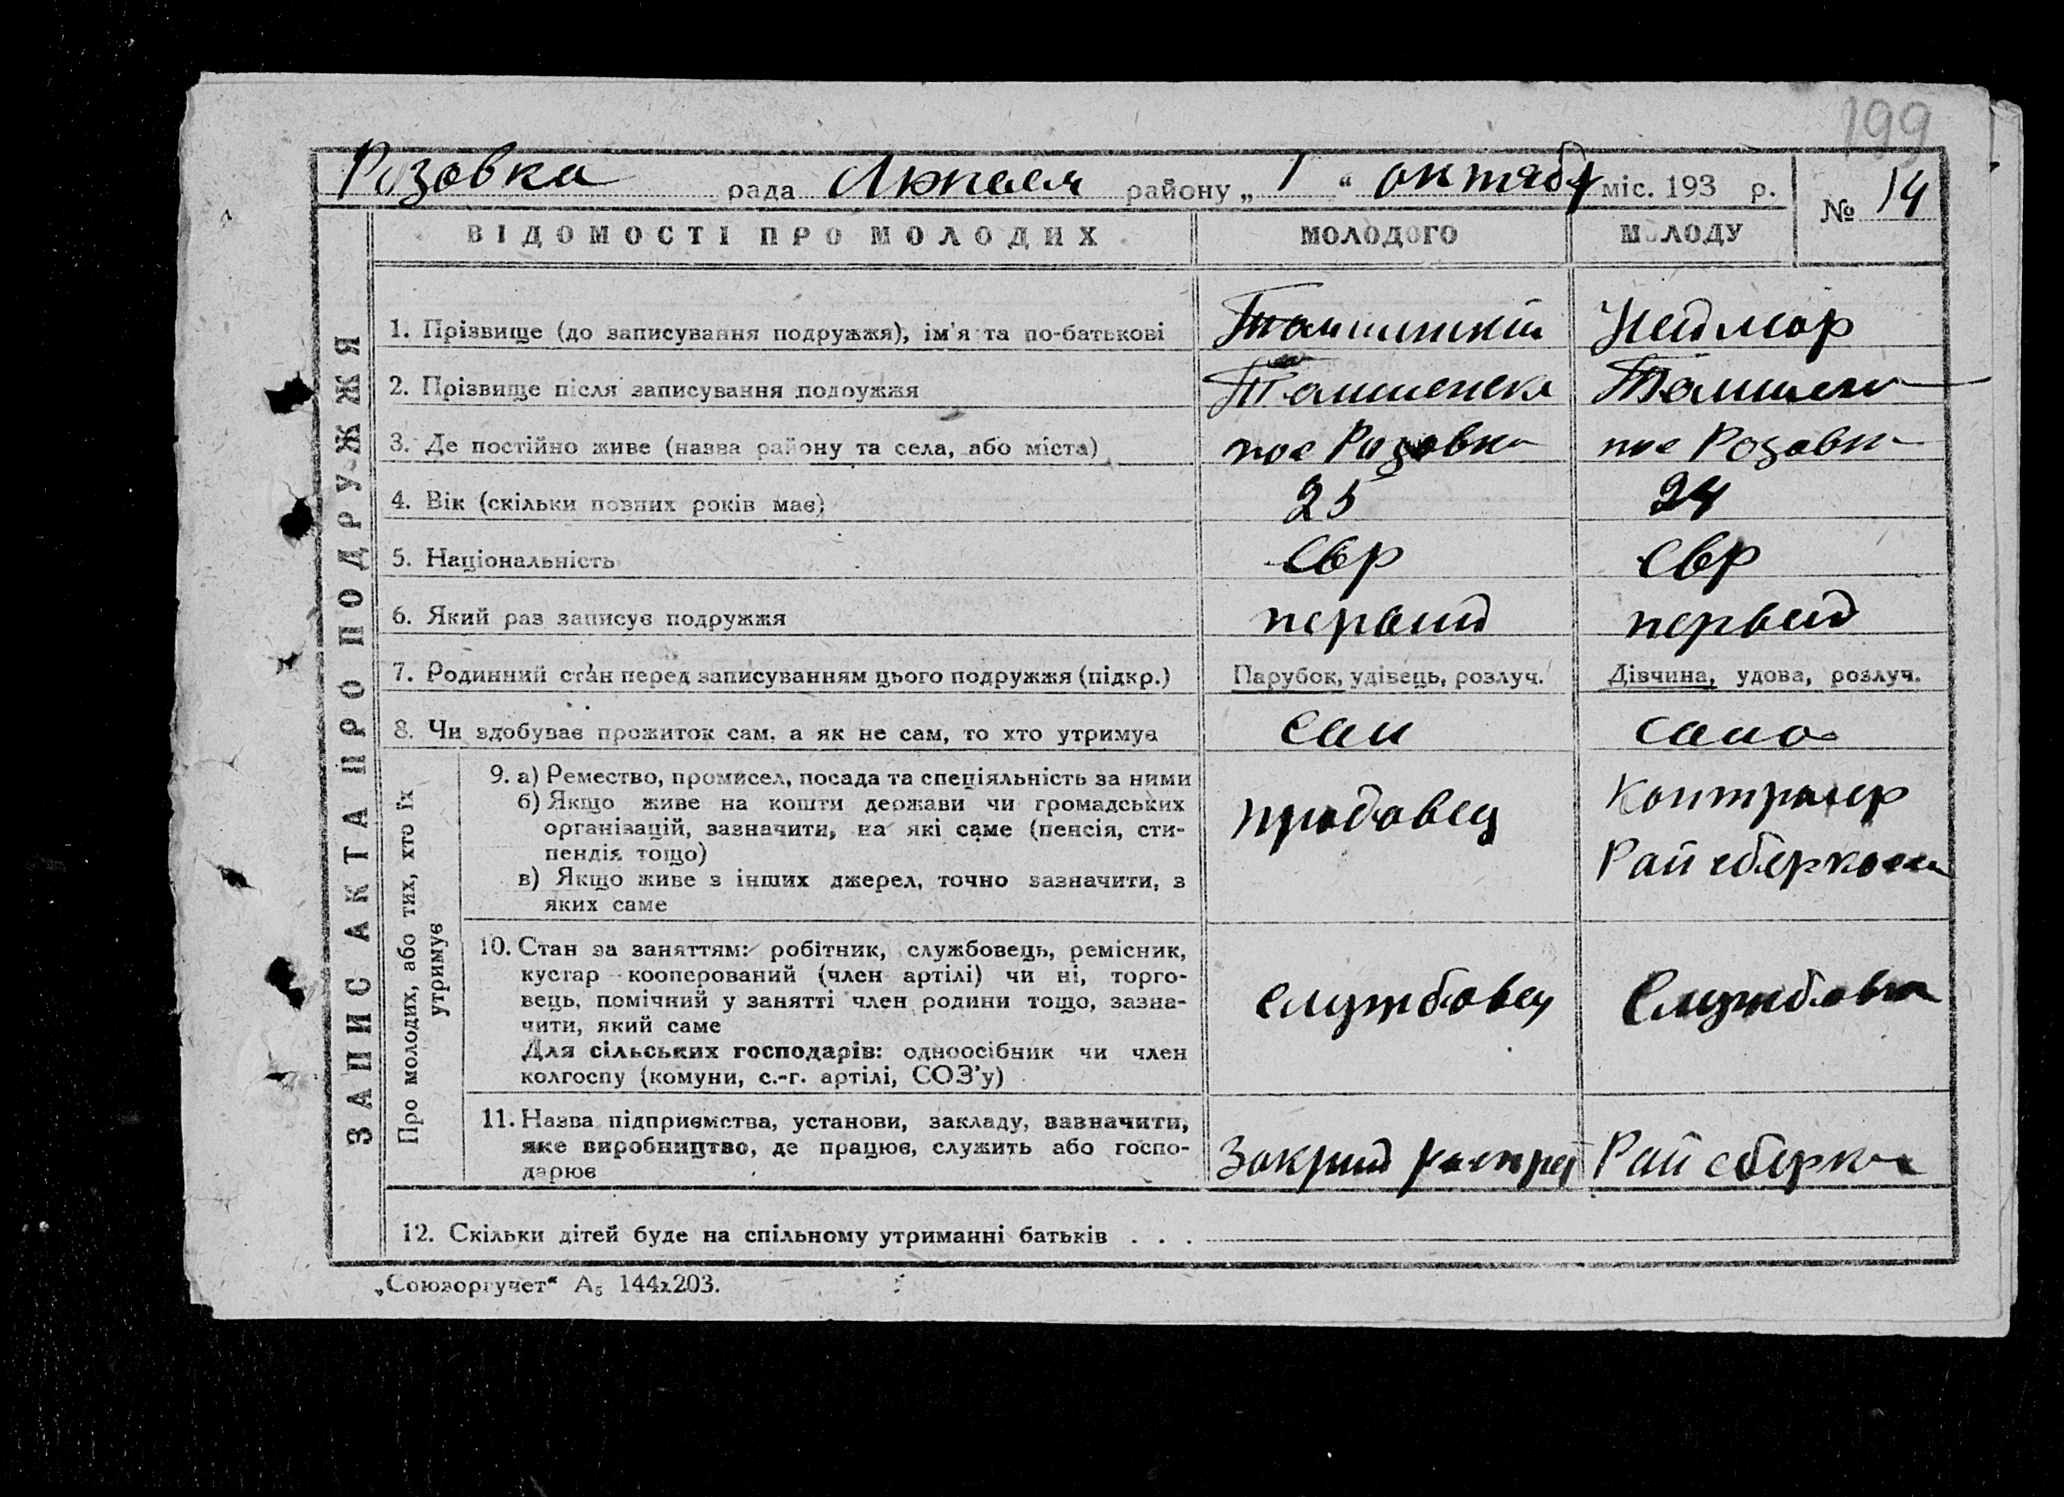 199
Розовка рада Люксем району „ 1 “ октябр міс. 193 р. № 14
ЗАПИС АКТА ПРО ПОДРУЖЖЯ
ВІДОМОСТІ ПРО МОЛОДИХ МОЛОДОГО МОЛОДУ
1. Прізвище (до записування подружжя), ім'я та по-батькові
2. Прізвище після записування подружжя
3. Де постійно живе (назва району та села, або міста) пос Розовка пос Розовк
4. Вік (скільки повних років має) 25 24
5. Національність Євр Євр
6. Який раз записує подружжя первий первый
7. Родинний стан перед записуванням цього подружжя (підкр.) Парубок, удівець, розлуч. Дівчина, удова, розлуч.
8. Чи здобуває прожиток сам, а як не сам, то хто утримує сам сама
Про молодих, або тих, хто їх
утримує
9. а) Ремество, промисел, посада та спеціяльність за ними
б) Якщо живе на кошти держави чи громадських
організацій, зазначити, на які саме (пенсія, сти-
пендія тощо)
в) Якщо живе з інших джерел, точно зазначити, з
яких саме
продавец
Контролер
Рай сберкасси
10. Стан за заняттям: робітник, службовець, ремісник,
кустар кооперований (член артілі) чи ні, торго-
вець, помічний у занятті член родини тощо, зазна-
чити, який саме
Для сільських господарів: одноосібник чи член
колгоспу (комуни, с.-г. артілі, СОЗ'у)
службовец
Службовка
11. Назва підприємства, установи, закладу, зазначити,
яке виробництво, де працює, служить або госпо-
дарює
Закрит распред
Рай сберка
12. Скільки дітей буде на спільному утриманні батьків . . .
„Союзоргучет“ А₅ 144х203.